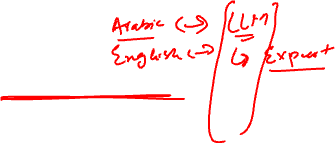 Arabic ↔ LLM
English ↔ ↳ Expert